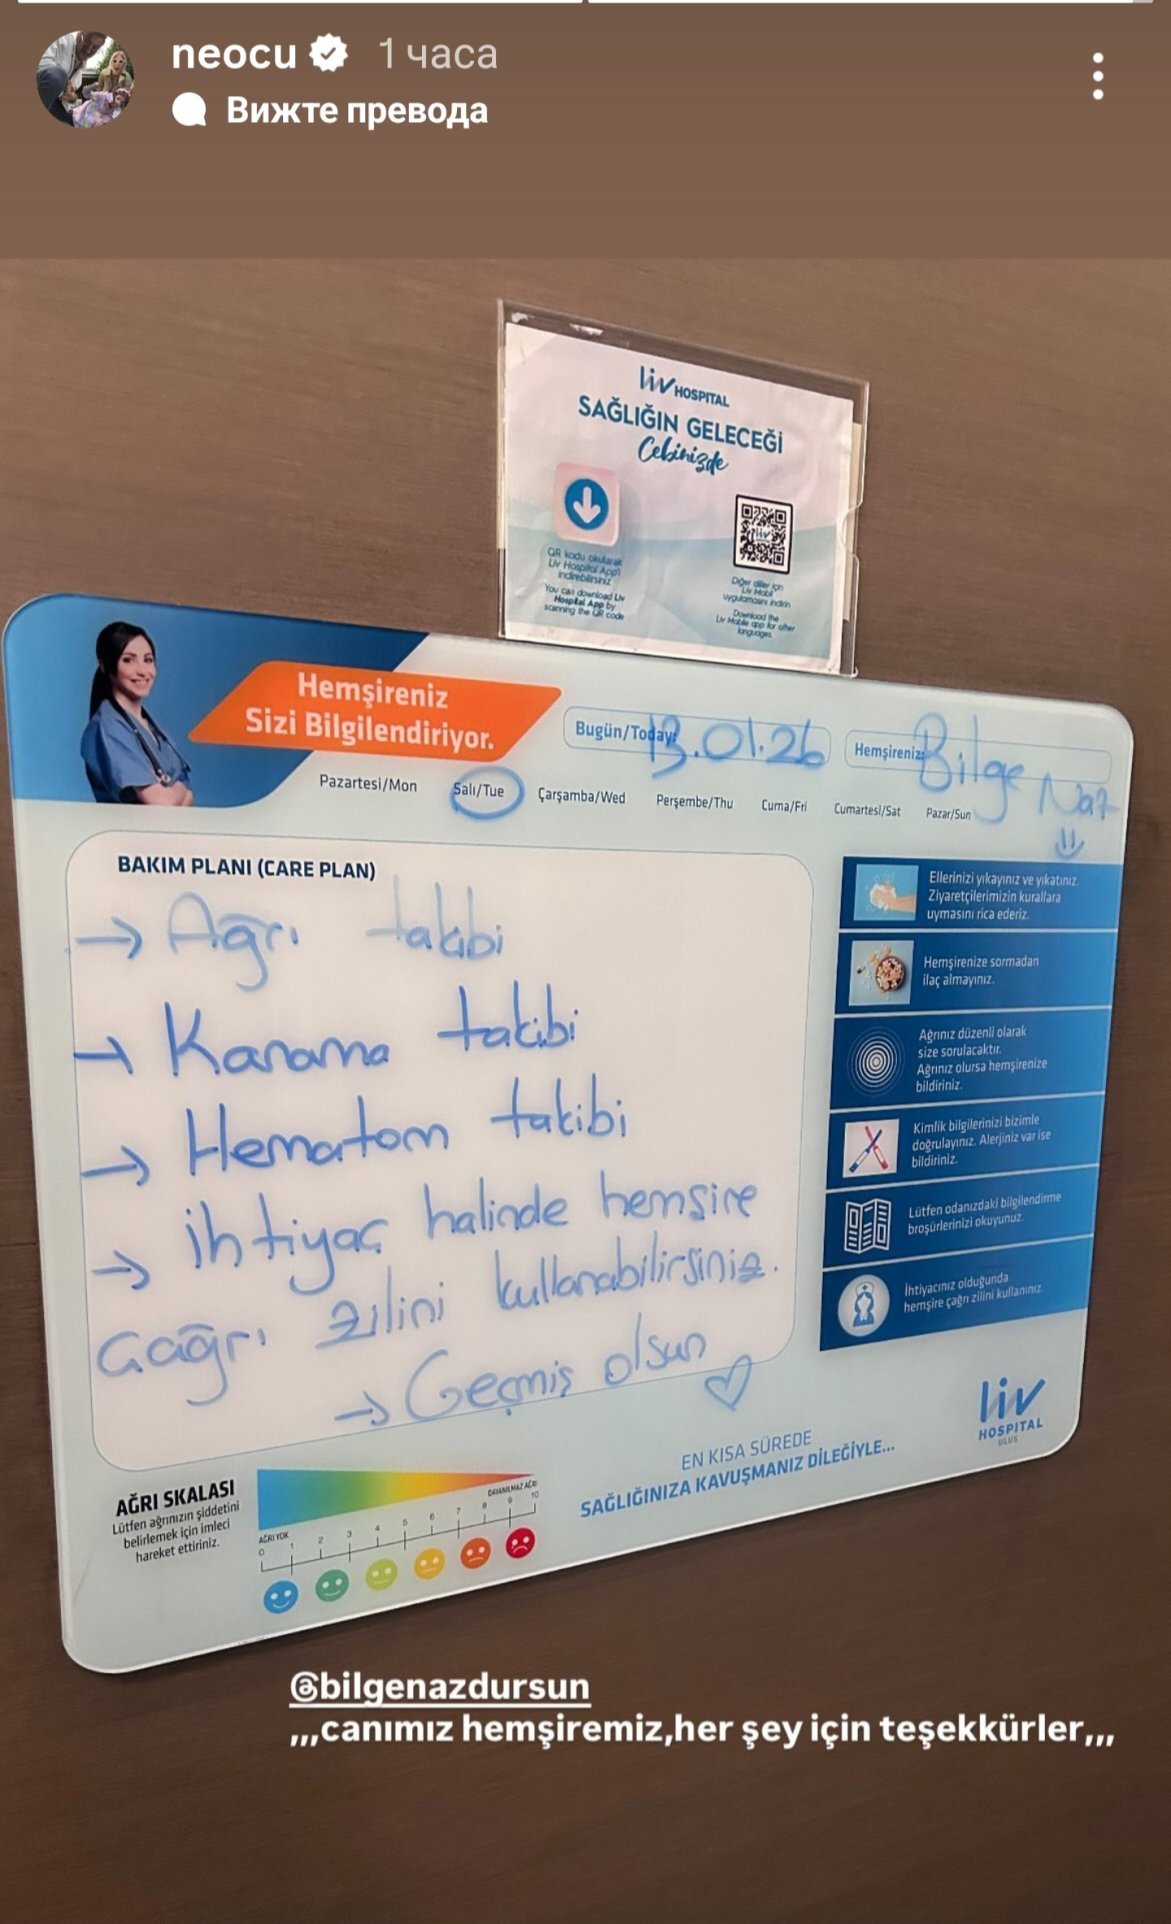 neocu 1 часа
Вижте превода
liv HOSPITAL
SAĞLIĞIN GELECEĞİ
Cebinizde
QR kodu okutarak
Liv Hospital App'i
indirebilirsiniz
You can download Liv
Hospital App by
scanning the QR code
Diğer diller için
Liv Mobil
uygulamasını indirin
Download the
Liv Mobile app for other
languages
Hemşireniz
Sizi Bilgilendiriyor.
Bugün/Today: 13.01.26
Hemşireniz: Bilge Naz
Pazartesi/Mon Salı/Tue Çarşamba/Wed Perşembe/Thu Cuma/Fri Cumartesi/Sat Pazar/Sun
BAKIM PLANI (CARE PLAN)
→ Ağrı takibi
→ Kanama takibi
→ Hematom takibi
→ ihtiyaç halinde hemşire
çağrı zilini kullanabilirsiniz.
→ Geçmiş olsun ♡
Ellerinizi yıkayınız ve yıkatınız.
Ziyaretçilerimizin kurallara
uymasını rica ederiz.
Hemşirenize sormadan
ilaç almayınız.
Ağrınız düzenli olarak
size sorulacaktır.
Ağrınız olursa hemşirenize
bildiriniz.
Kimlik bilgilerinizi bizimle
doğrulayınız. Alerjiniz var ise
bildiriniz.
Lütfen odanızdaki bilgilendirme
broşürlerinizi okuyunuz.
İhtiyacınız olduğunda
hemşire çağrı zilini kullanınız.
liv
HOSPITAL
ULUS
EN KISA SÜREDE
SAĞLIĞINIZA KAVUŞMANIZ DİLEĞİYLE...
AĞRI SKALASI
Lütfen ağrınızın şiddetini
belirlemek için imleci
hareket ettiriniz.
AĞRI YOK DAYANILMAZ AĞRI
0 1 2 3 4 5 6 7 8 9 10
@bilgenazdursun
,,,canımız hemşiremiz,her şey için teşekkürler,,,